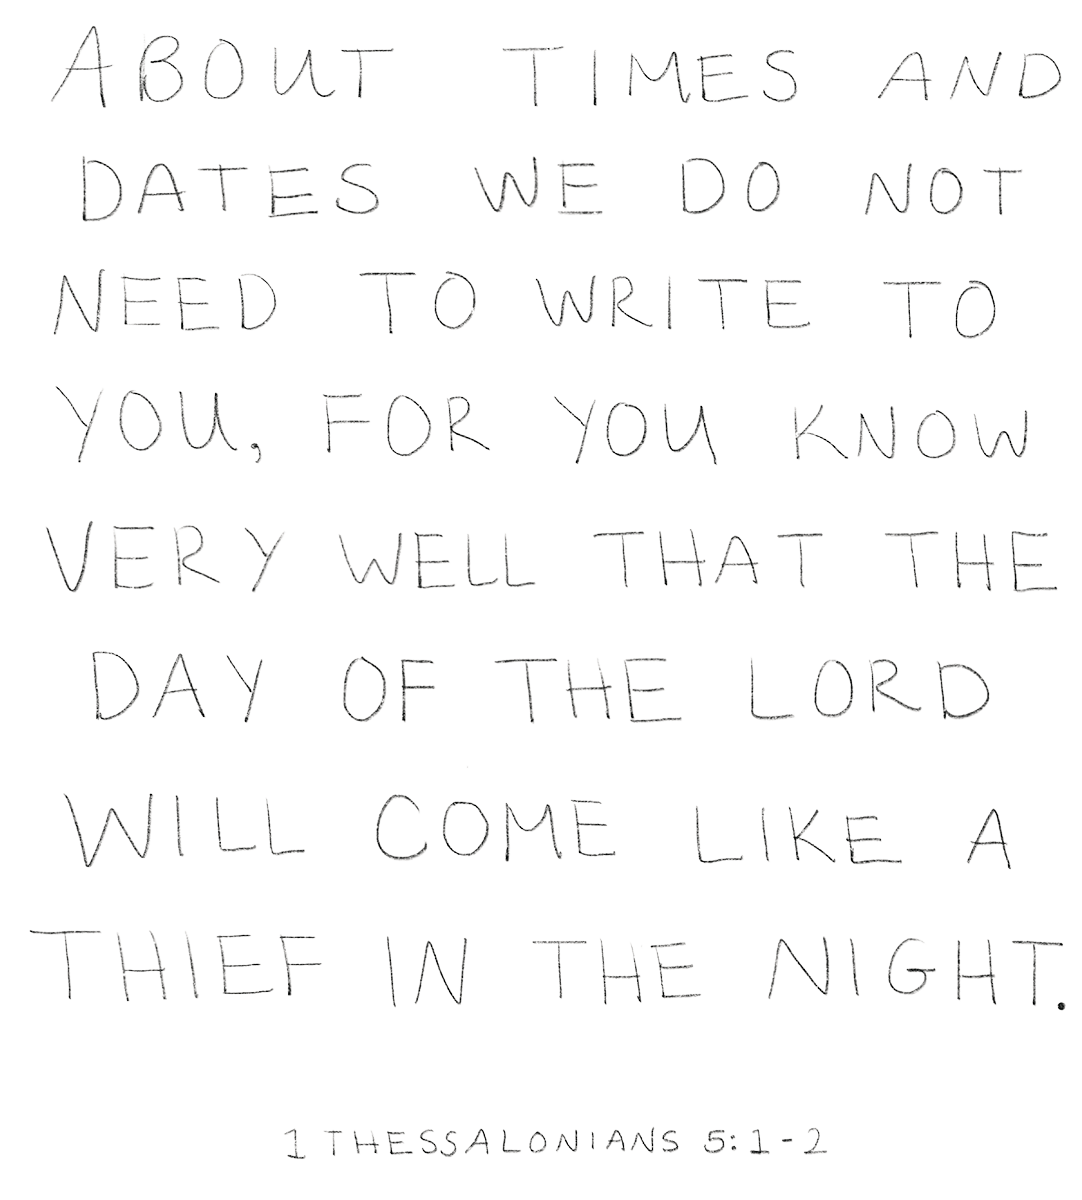 ABOUT TIMES AND
DATES WE DO NOT
NEED TO WRITE TO
YOU, FOR YOU KNOW
VERY WELL THAT THE
DAY OF THE LORD
WILL COME LIKE A
THIEF IN THE NIGHT.
1 THESSALONIANS 5:1-2